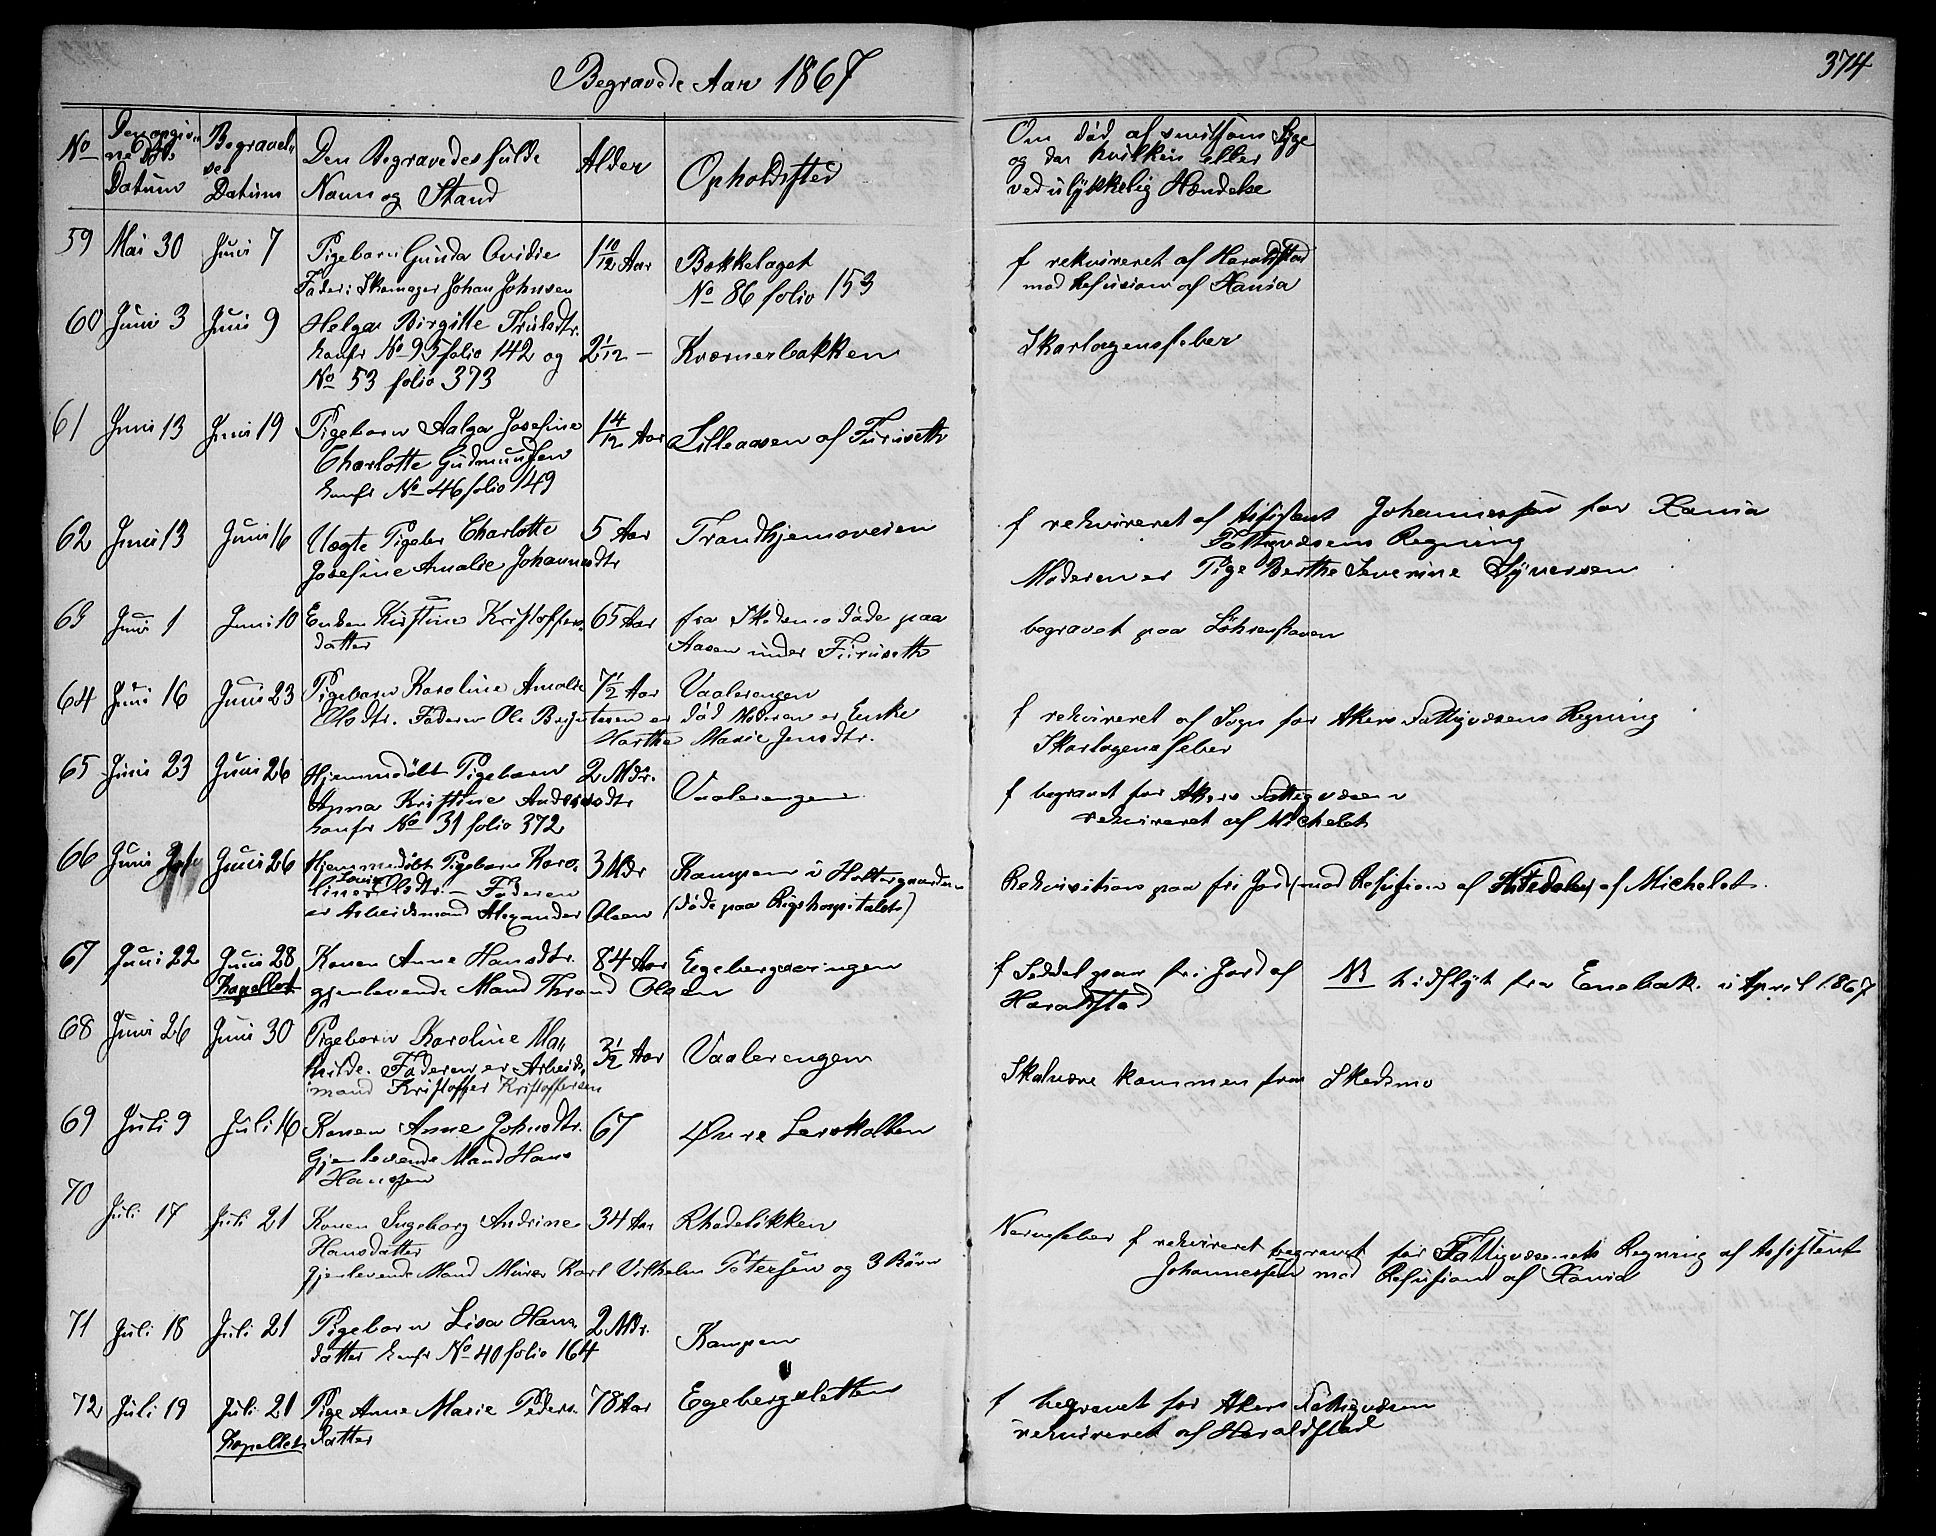 374
Begravede Aar 1867
No
Den opgiv-
ne Døds
Datum
Begravel-
ses
Datum
Den Begravedes fulde
Navn og Stand
Alder
Opholdssted
Om død af smitsom Syge
og da hvilken eller
ved ulykkelig Hændelse
59 Mai 30 Juni 7 Pigebarn Gunda Ovidie 1 10/12 Aar Bækkelaget f rekvireret af Haraldstad
Fader: Skomager Johan Johnsen No 86 folio 153 mod Refusion af Xania
60 Juni 3 Juni 9 Helga Birgitte Trulsdtr. Skarlagensfeber
konfr No 95 folio 142 og 2 1/12 - Kværnerbakken
No 53 folio 373
61 Juni 13 Juni 19 Pigebarn Aalga Josefine 1 4/12 Aar Lilleaasen af Furuseth
Charlotte Gudmundsen
konfr No 46 folio 149
62 Juni 13 Juni 16 Uægte Pigebr Charlotte 5 Aar Trondhjemsveien f rekvireret af Assistent Johannessen for Xania
Fattigvæsens Regning
Josefine Amalie Johannsdtr Moderen er Pige Berthe Severine Syversen
63 Juni 1 Juni 10 Enken Kirstine Kristoffers- 65 Aar fra Skedsmo døde paa begravet paa
datter Aasen under Furuseth
64 Juni 16 Juni 23 Pigebarn Karoline Amalie 7 1/2 Aar Vaalerengen f rekvireret af Sogn for Akers Fattigvæsens Regning
Olsdtr. Faderen Ole er død Moderen er Enke Skarlagensfeber
Marthe Marie Jensdtr.
65 Juni 23 Juni 26 Hjemmedøbt Pigebarn 2 Mdr. Vaalerengen f begravet for Akers Fattigvæsen
Anna Kristine Andersdtr rekvireret af Michelet
konfr No 31 folio 372
66 Juni Juni 26 Hjemmedøbt Pigebarn Karo- 3 Mdr Kampen i Holtegaarden Rekvisition paa fri Jord (mod Refusion af af Michelet.
line Lovise Olsdtr. - Faderen
er Arbeidsmand Alexander Olsen (døde paa Rigshospitalet)
67 Juni 22 Juni 28 Konen Anne Hansdtr. 84 Aar Egebergsvingen f Seddel paa fri Jord af NB hidflyt fra Enebak i April 1867
Kapellet gjenlevende Mand Thrond Olsen Haraldstad
68 Juni 26 Juni 30 Pigebarn Karoline Ma-
thilde. Faderen er Arbeids- 3 1/2 Aar Vaalerengen Skal være kommen fra Skedsmo
mand Kristoffer Kristoffersen
69 Juli 9 Juli 16 Konen Anne Johnsdtr. 67 Øvre Lerskallen
Gjenlevende Mand Hans
Hansen
70 Juli 17 Juli 21 Konen Ingeborg Andrine 34 Aar Rhodeløkken Nervefeber f rekvireret begravet for Fattigvæsenets Regning af Assistent
Hansdatter Johannessen mod Refusion af Xania
gjenlevende Mand Murer Karl Vilhelm Petersen og 3 Børn
71 Juli 18 Juli 21 Pigebarn Lisa Hans- 2 Mdr. Kampen
datter konfr No 40 folio 164
72 Juli 19 Juli 21 Pige Anne Marie Peders- 78 Aar Egebergsletten f begravet for Akers Fattigvæsen
Kapellet datter rekvireret af Haraldstad